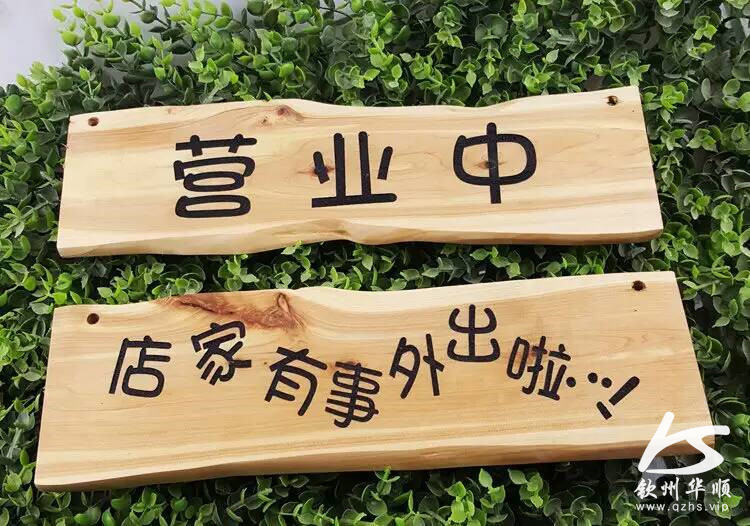 营业中
店家有事外出啦...!
钦州华顺
www.qzhs.vip